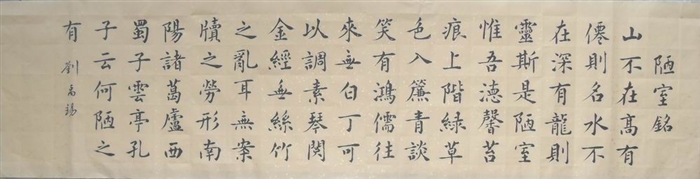 陋室銘
山不在高有
僊則名水不
在深有龍則
靈斯是陋室
惟吾德馨苔
痕上階綠草
色入簾青談
笑有鴻儒往
來無白丁可
以調素琴閱
金經無絲竹
之亂耳無案
牘之勞形南
陽諸葛廬西
蜀子雲亭孔
子云何陋之
有
劉禹錫